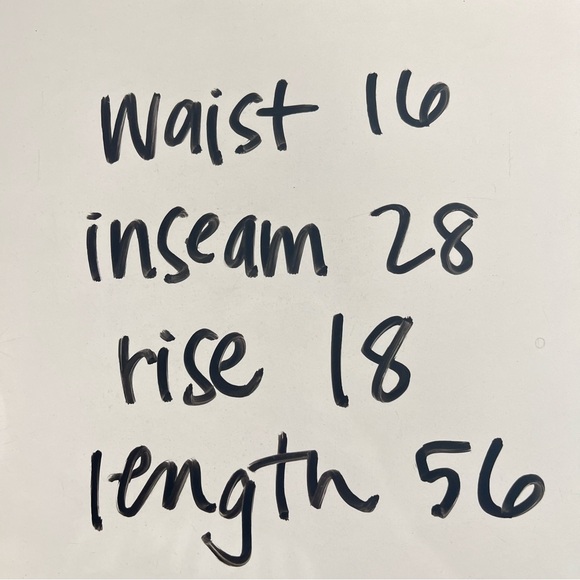 waist 16
inseam 28
rise 18
length 56